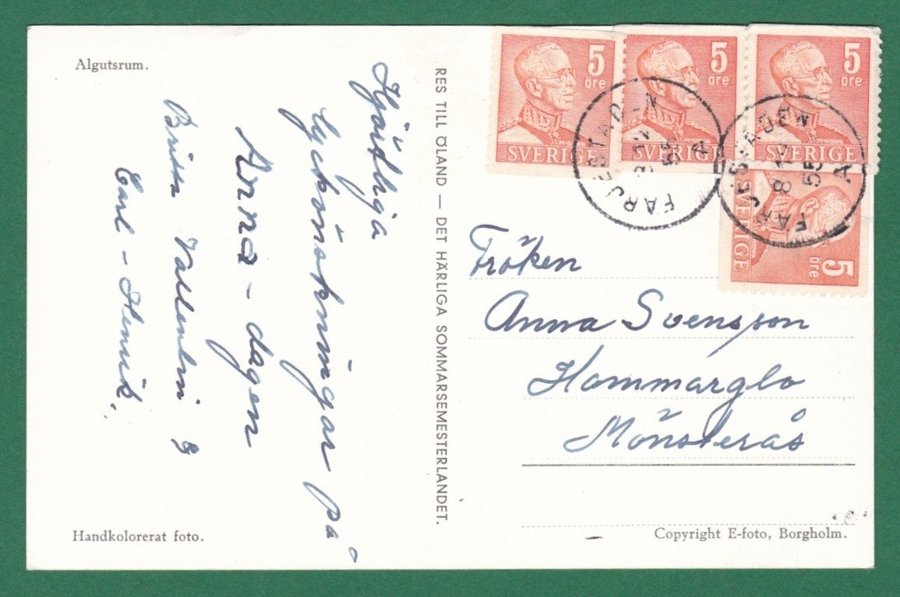 Algutsrum.
Hjärtliga
lyckönskningar på
Anna-dagen
Britta Valentin &
Carl-Henrik.
Handkolorerat foto.
RES TILL ÖLAND — DET HÄRLIGA SOMMARSEMESTERLANDET.
5
öre
SVERIGE
5
öre
SVERIGE
5
öre
SVERIGE
5
öre
SVERIGE
FÄRJESTADEN
A
FÄRJESTADEN
8 12
55
A
Fröken
Anna Svensson
Hammarglo
Mönsterås
Copyright E-foto, Borgholm.